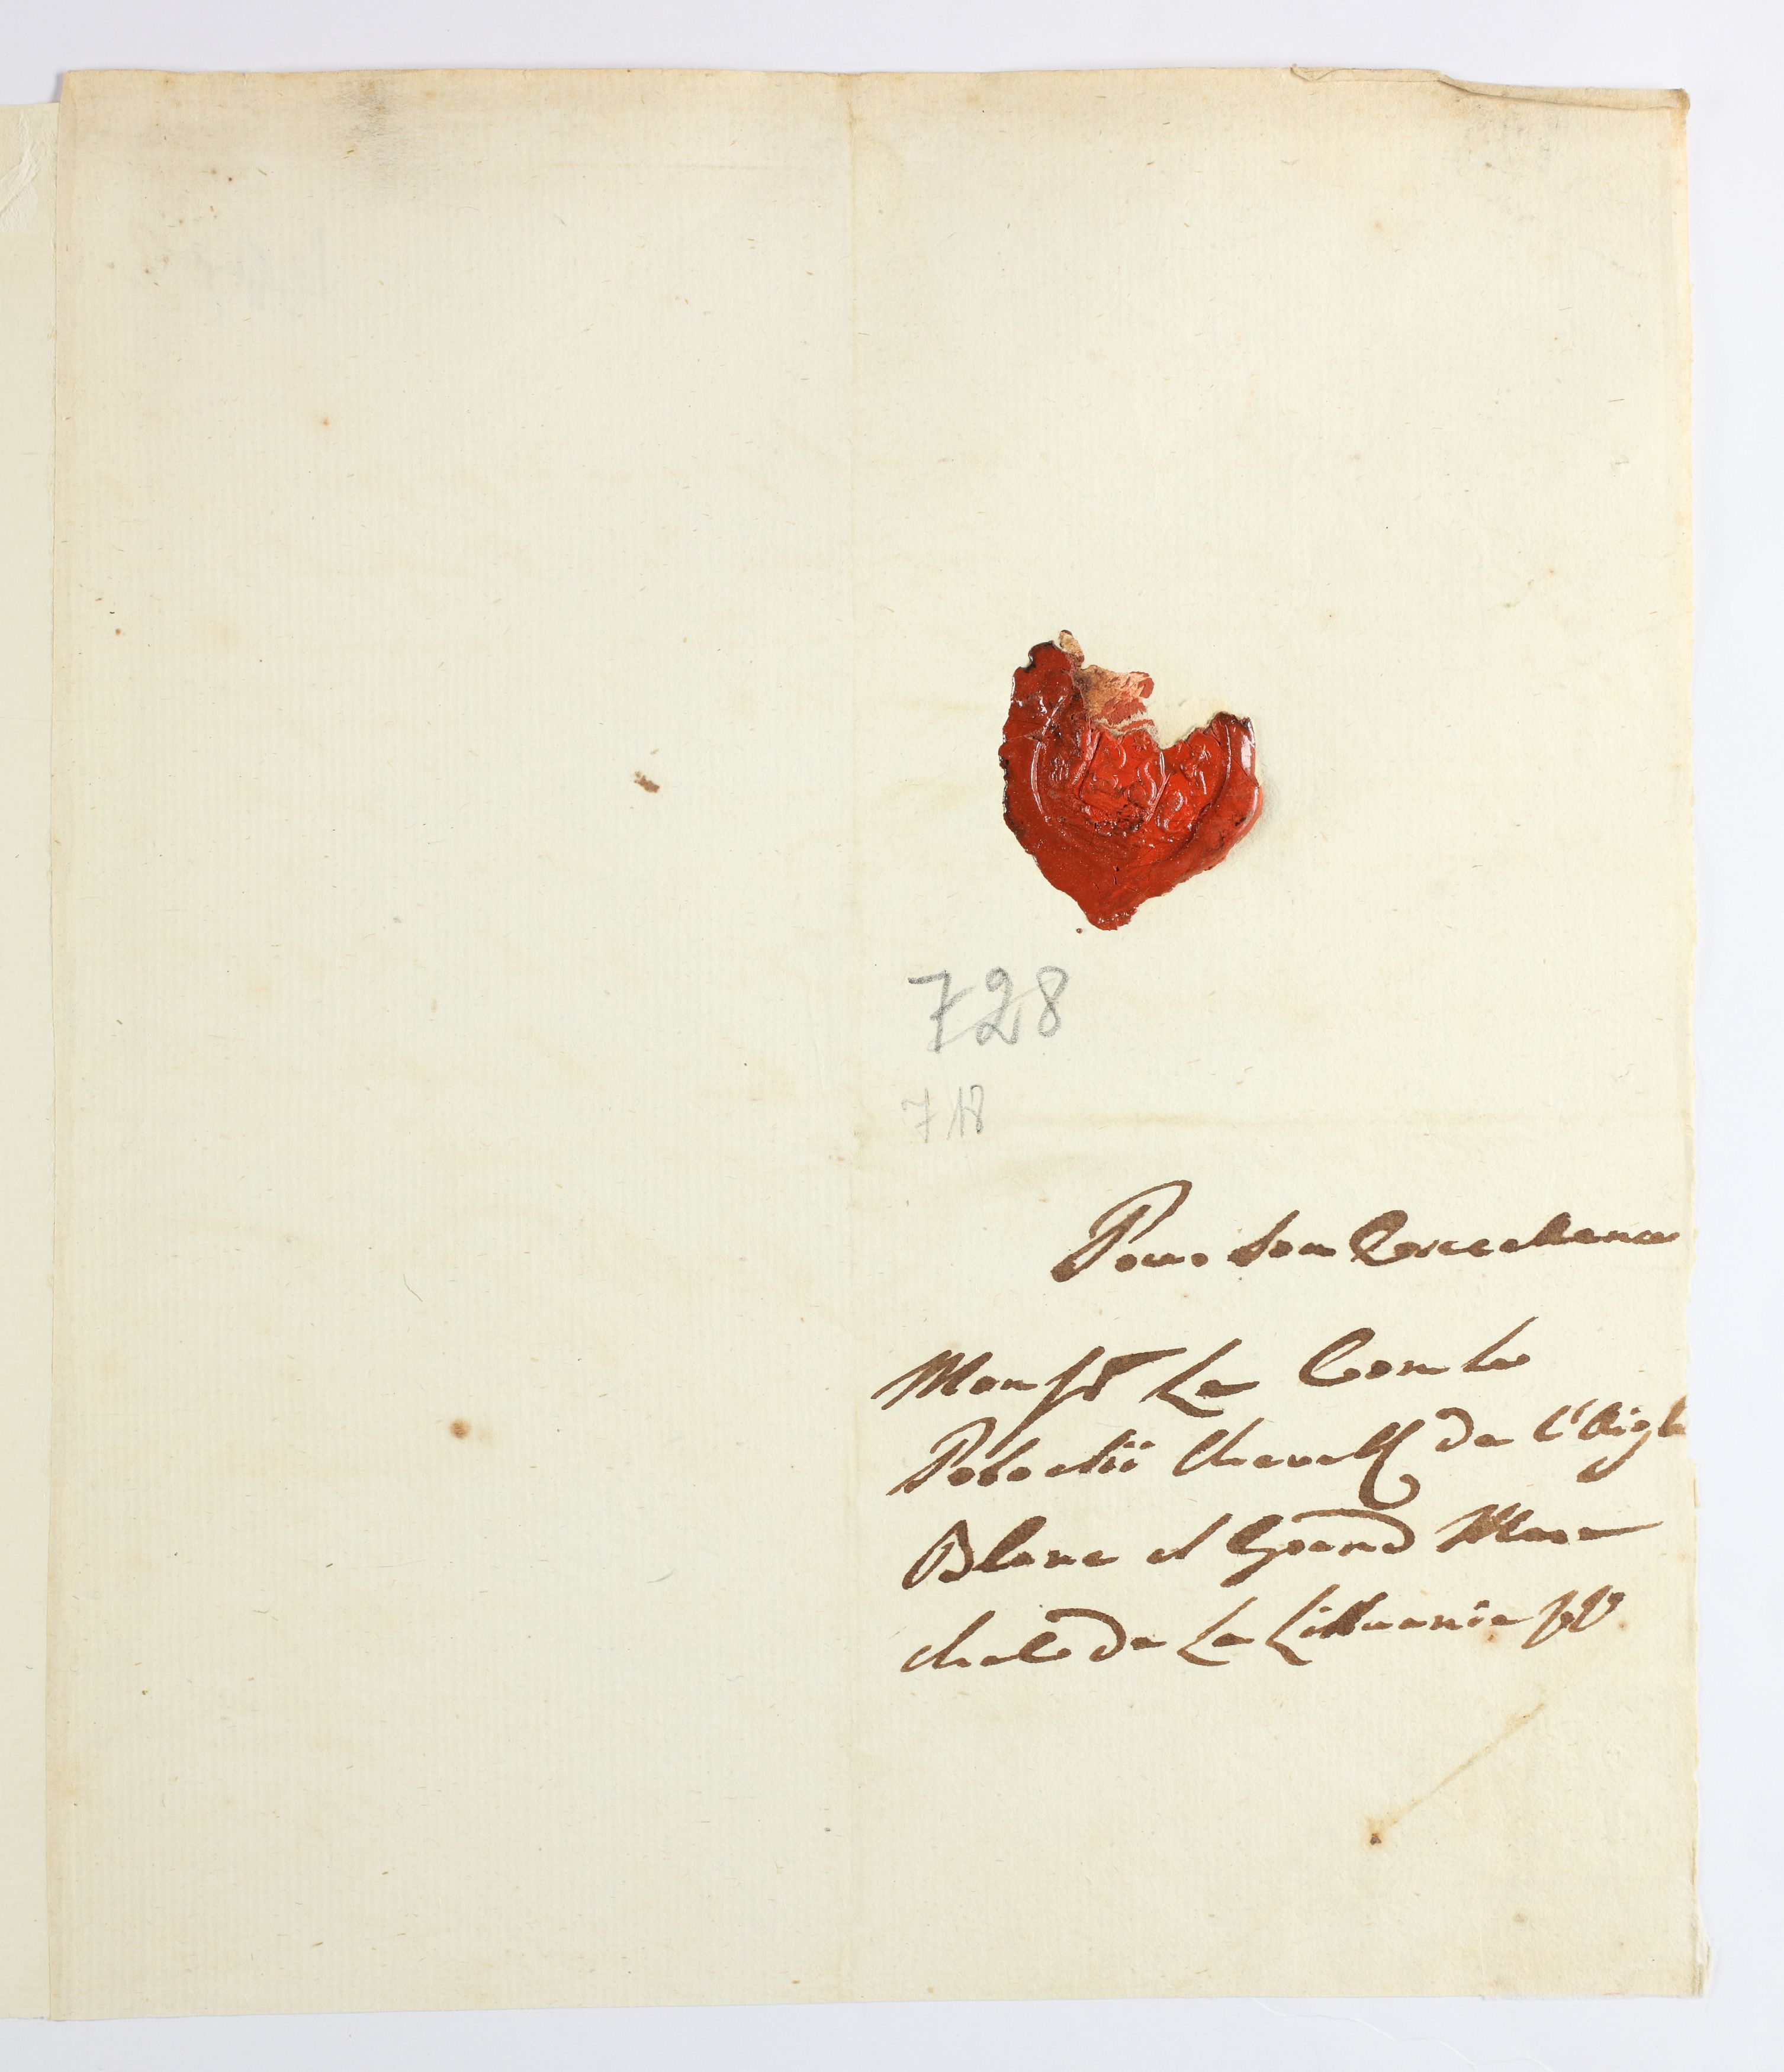 728
718
Pour Son Excellence
Mons̃r Le Comte
Potockii Cheval de l'Aigle
Blanc et Grand Mare
chal de La Lithuanie pp